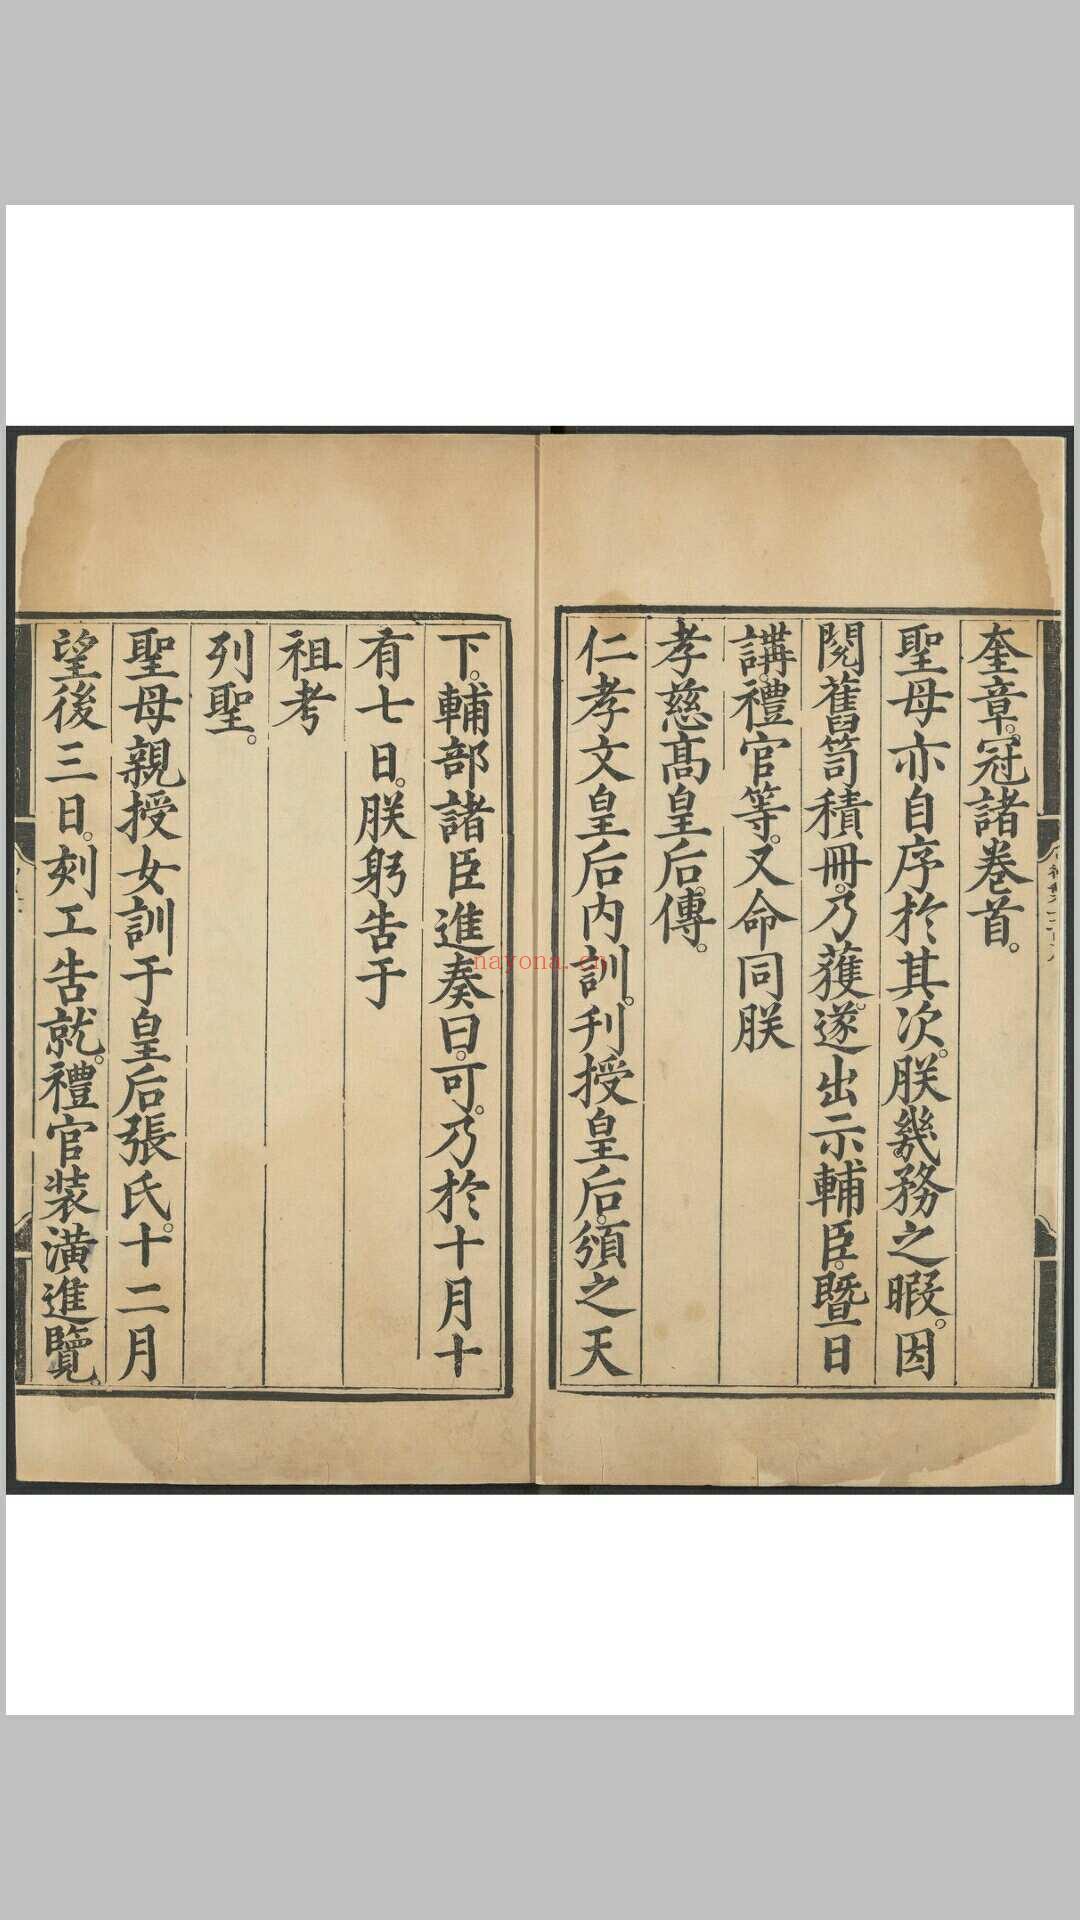 奎章。冠諸卷首。
聖母亦自序於其次。朕幾務之暇。因
閱舊笥積冊。乃獲。遂出示輔臣。暨日
講。禮官等。又命同朕
孝慈高皇后。傳。
仁孝文皇后內訓。刊授皇后。頒之天
下。輔部諸臣進奏曰。可。乃於十月十
有七日。朕躬告于
祖考
列聖。
聖母親授女訓于皇后張氏。十二月
望後三日。刻工告就。禮官裝潢進覽。
nayona.cn